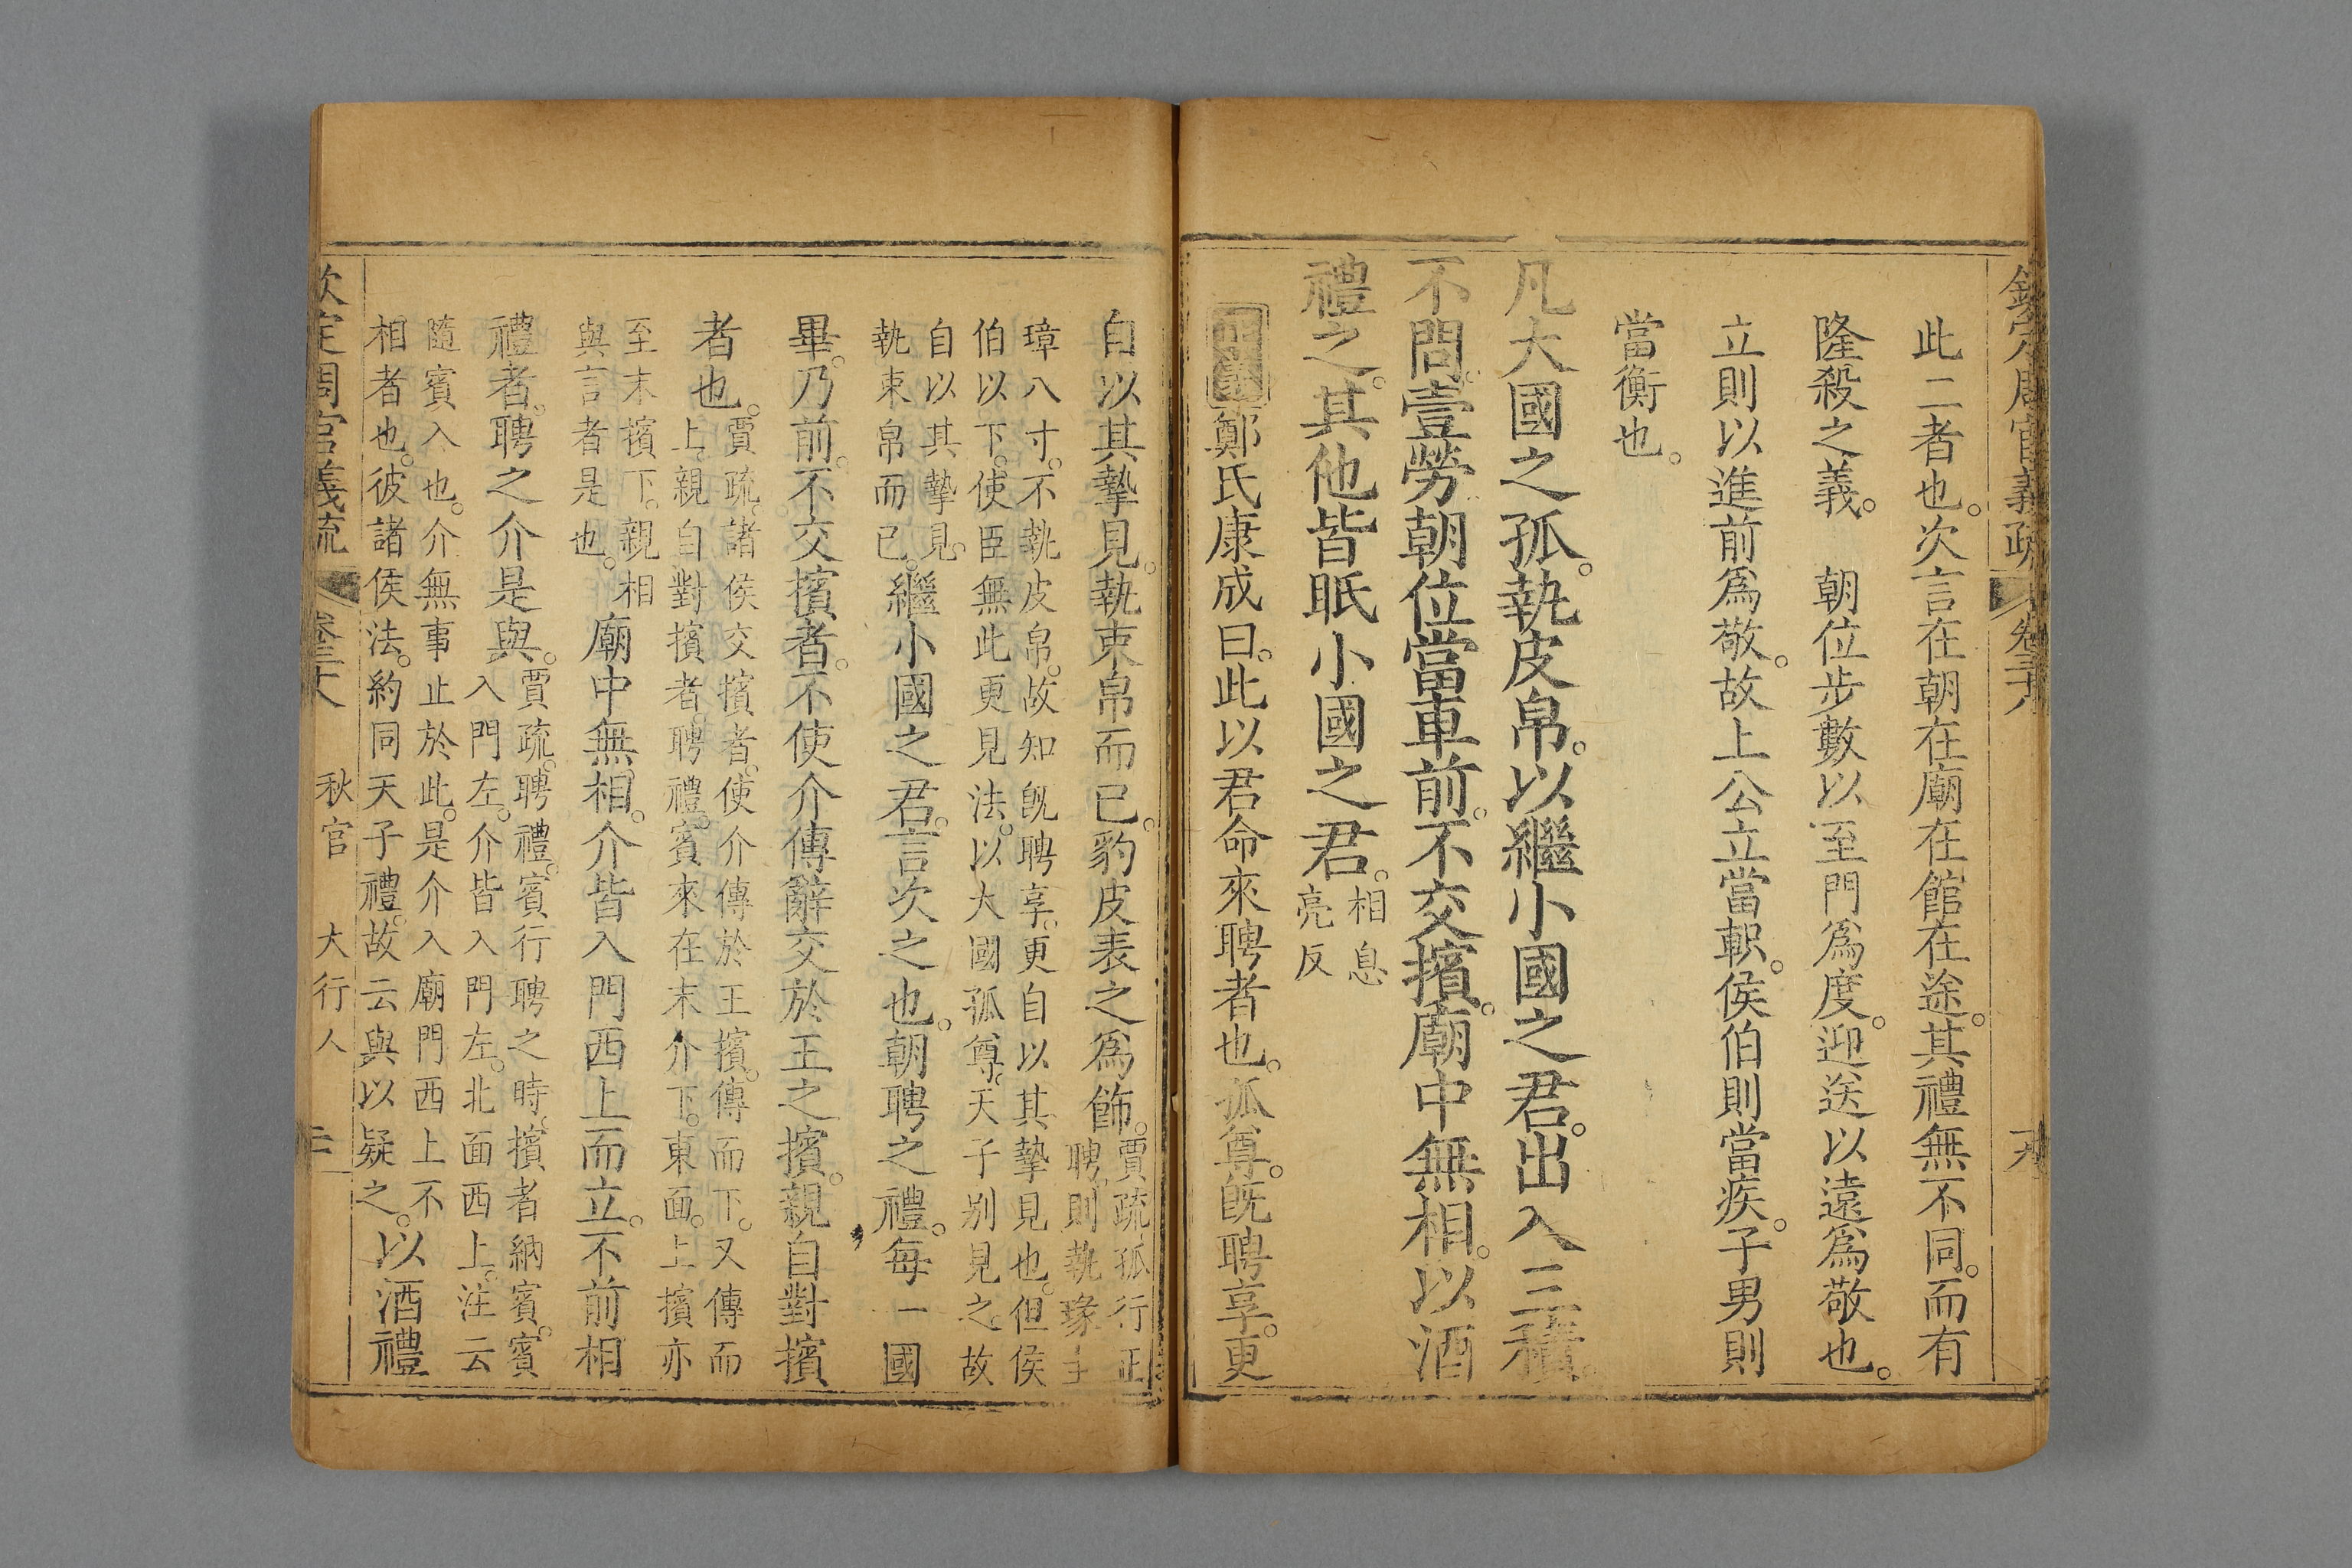 欽定周官義疏 卷三十八
此二者也。次言在朝在廟在館在途。其禮無不同。而有
隆殺之義。 朝位步數以至門爲度。迎送以遠爲敬也。
立則以進前爲敬。故上公立當軹。侯伯則當疾。子男則
當衡也。
凡大國之孤。執皮帛。以繼小國之君。出入三積。
不問。壹勞。朝位當車前。不交擯。廟中無相。以酒
禮之。其他皆眡小國之君。
相息
亮反
鄭氏康成曰。此以君命來聘者也。孤尊。旣聘享。更
自以其摯見。執束帛而已。豹皮表之爲飾。
賈疏。孤行正
聘。則執瑑圭
璋八寸。不執皮帛。故知旣聘享。更自以其摯見也。但侯
伯以下。使臣無此更見法。以大國孤尊。天子別見之。故
自以其摯見。
執束帛而已。
繼小國之君。言次之也。朝聘之禮。每一國
畢。乃前。不交擯者。不使介傳辭交於王之擯。親自對擯
者也。
賈疏。諸侯交擯者。使介傳於王擯。傳而下。又傳而
上。親自對擯者。聘禮。賓來在末介下。東面。上擯亦
至末擯下。親相
與言者是也。
廟中無相。介皆入門西上而立。不前相
禮者。聘之介是與。
賈疏。聘禮。賓行聘之時。擯者納賓。賓
入門左。介皆入門左。北面西上。注云
隨賓入也。介無事止於此。是介入廟門西上不
相者也。彼諸侯法。約同天子禮。故云與以疑之。
以酒禮
欽定周官義疏 卷三十八 秋官 大行人